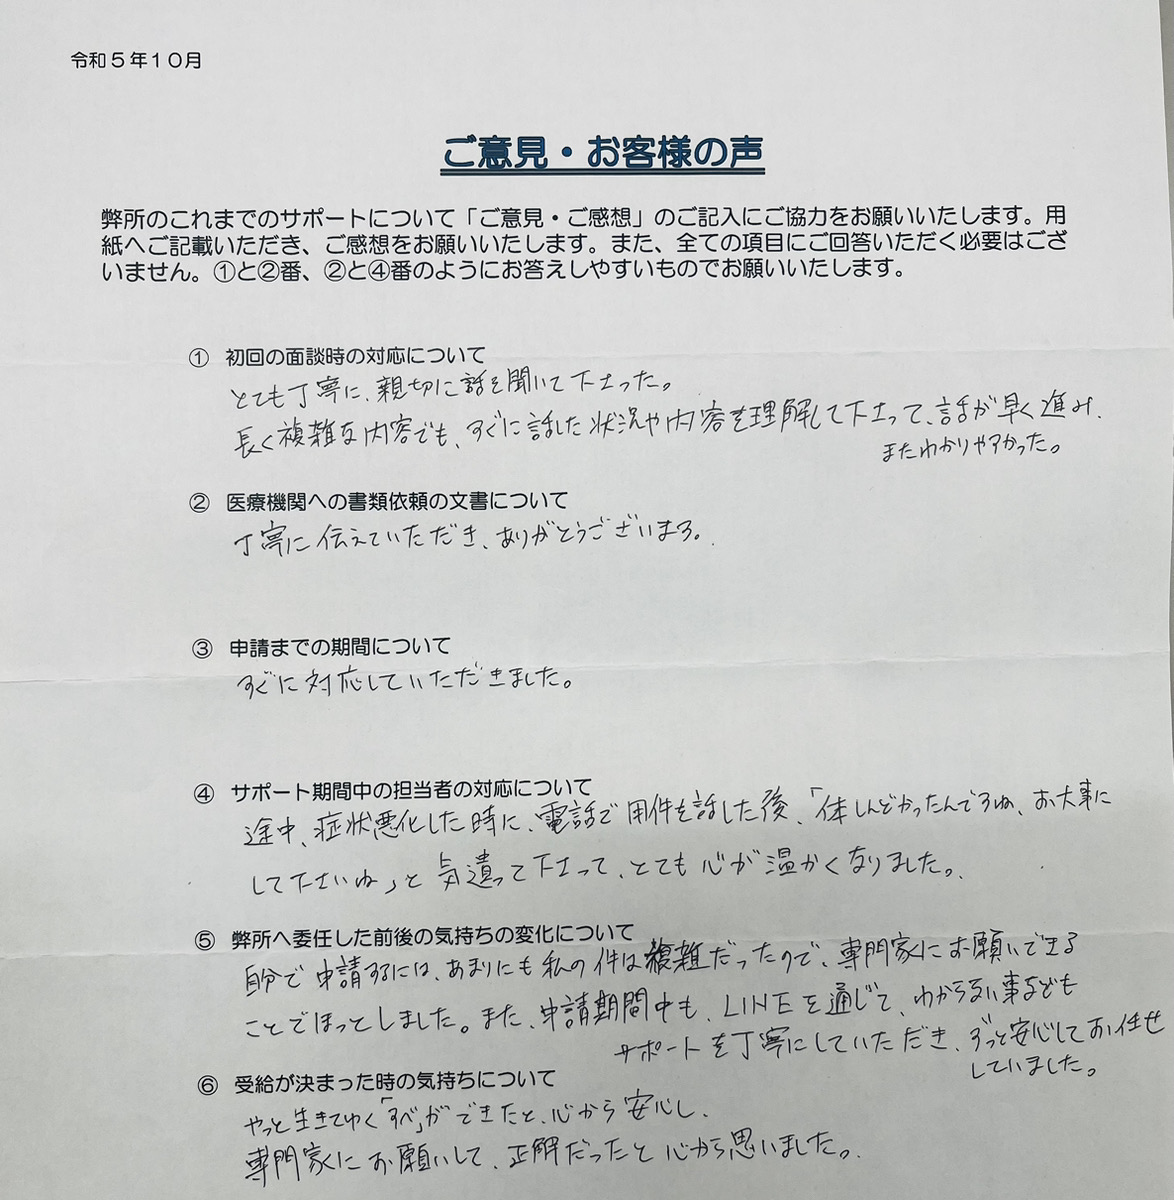 令和5年10月
ご意見・お客様の声
弊所のこれまでのサポートについて「ご意見・ご感想」のご記入にご協力をお願いいたします。用
紙へご記載いただき、ご感想をお願いいたします。また、全ての項目にご回答いただく必要はござ
いません。①と②番、②と④番のようにお答えしやすいものでお願いいたします。
① 初回の面談時の対応について
とても丁寧に、親切に話を聞いて下さった。
長く複雑な内容でも、すぐに話した状況や内容を理解して下さって、話が早く進み、
またわかりやすかった。
② 医療機関への書類依頼の文書について
丁寧に伝えていただき、ありがとうございます。
③ 申請までの期間について
すぐに対応していただきました。
④ サポート期間中の担当者の対応について
途中、症状悪化した時に、電話で用件を話した後、「体しんどかったんですね、お大事に
して下さいね」と気遣って下さって、とても心が温かくなりました。
⑤ 弊所へ委任した前後の気持ちの変化について
自分で申請するには、あまりにも私の件は複雑だったので、専門家にお願いできる
ことでほっとしました。また、申請期間中も、LINEを通じて、わからない事なども
サポートを丁寧にしていただき、ずっと安心してお任せ
していました。
⑥ 受給が決まった時の気持ちについて
やっと生きてゆく「すべ」ができたと、心から安心し、
専門家にお願いして、正解だったと心から思いました。